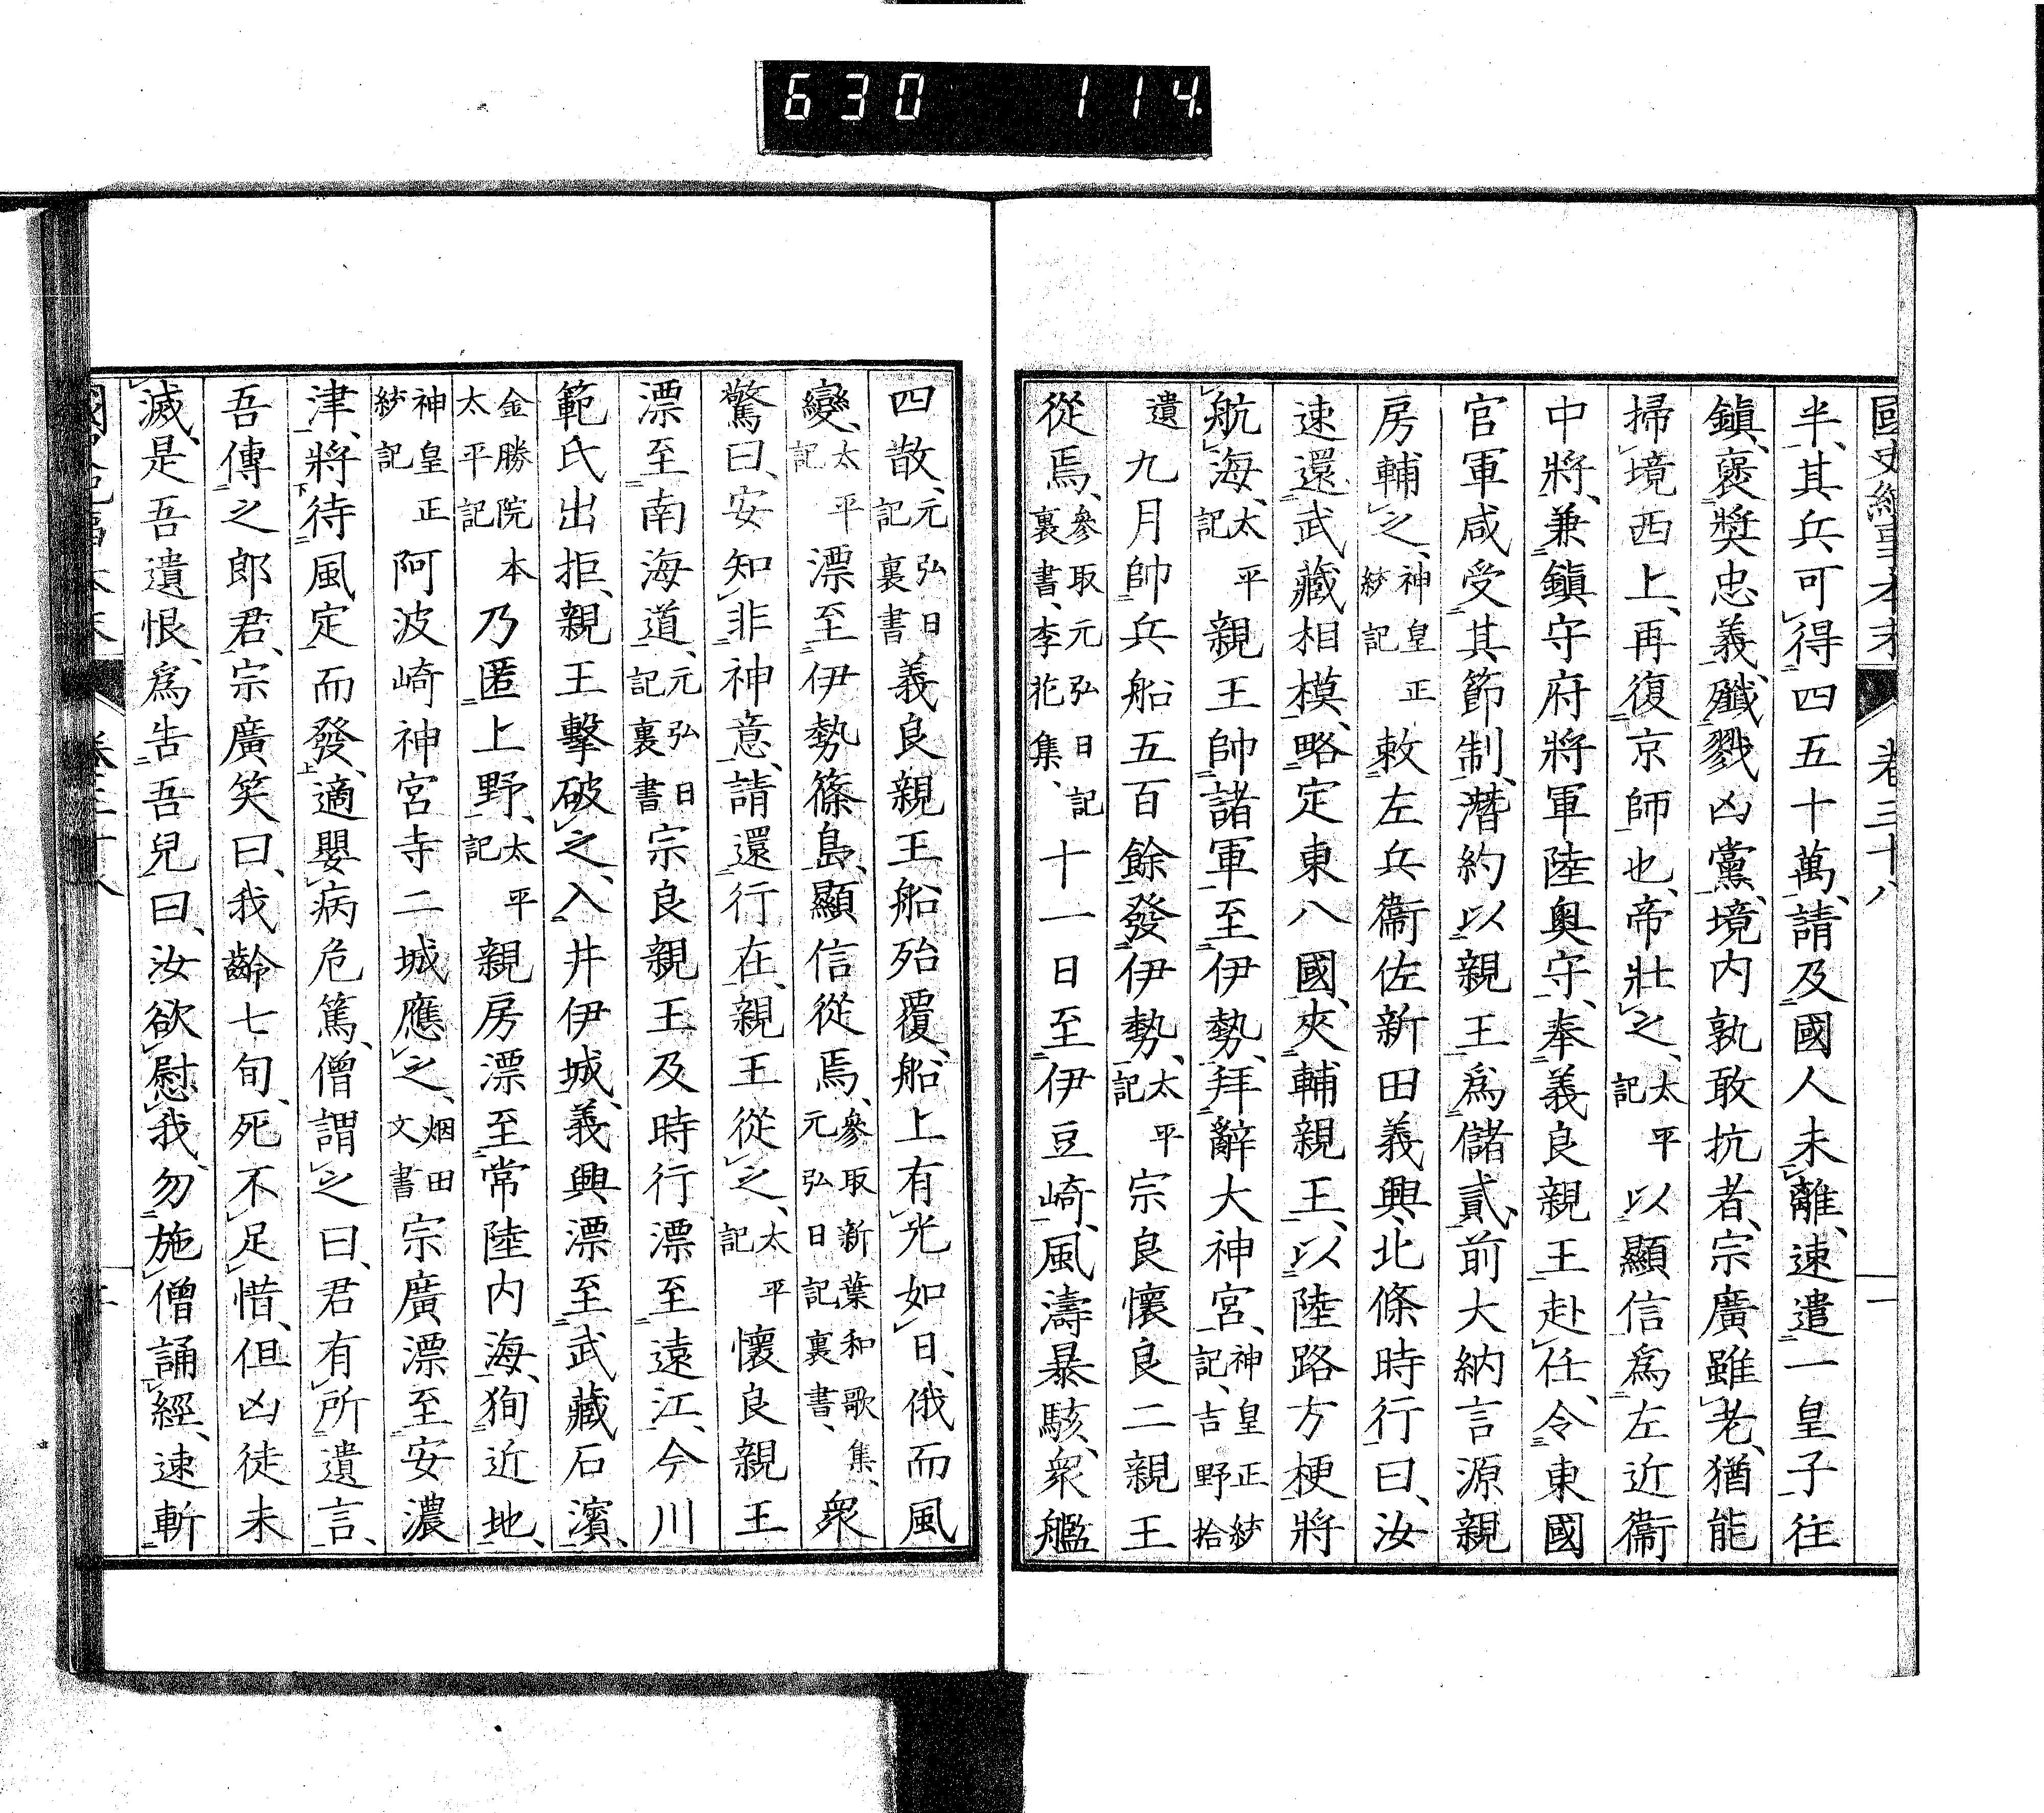 630 114
國史紀事本末 卷三十八 一
半、其兵可得四五十萬、請及國人未離、速遣一皇子往
鎮、褒奬忠義、殲戮凶黨、境内孰敢抗者、宗廣雖老、猶能
掃境西上、再復京師也、帝壯之、太平記以顯信爲左近衞
中將、兼鎮守府將軍陸奧守、奉義良親王赴任、令東國
官軍咸受其節制、潛約以親王爲儲貳、前大納言源親
房輔之、神皇正紗記敕左兵衞佐新田義興、北條時行曰、汝
速還武藏相模、略定東八國、夾輔親王、以陸路方梗、將
航海、太平記親王帥諸軍至伊勢、拜辭大神宮、神皇正紗記、吉野拾
遺九月帥兵船五百餘發伊勢、太平記宗良懷良二親王
從焉、參取元弘日記裏書、李花集、十一日至伊豆崎、風濤暴駭、衆艦
四散、元弘日記裏書義良親王船殆覆、船上有光如日、俄而風
變、太平記漂至伊勢篠島、顯信從焉、參取新葉和歌集、元弘日記裏書、衆
驚曰、安知非神意、請還行在、親王從之、太平記懷良親王
漂至南海道、元弘日記裏書宗良親王及時行漂至遠江、今川
範氏出拒、親王擊破之、入井伊城、義興漂至武藏石濱、
金勝院本太平記乃匿上野、太平記親房漂至常陸内海、狥近地、
神皇正紗記阿波崎神宮寺二城應之、烟田文書宗廣漂至安濃
津、將待風定而發、適嬰病危篤、僧謂之曰、君有所遺言、
吾傳之郎君、宗廣笑曰、我齡七旬、死不足惜、但凶徒未
滅、是吾遺恨、爲吿吾兒曰、汝欲慰我、勿施僧誦經、速斬